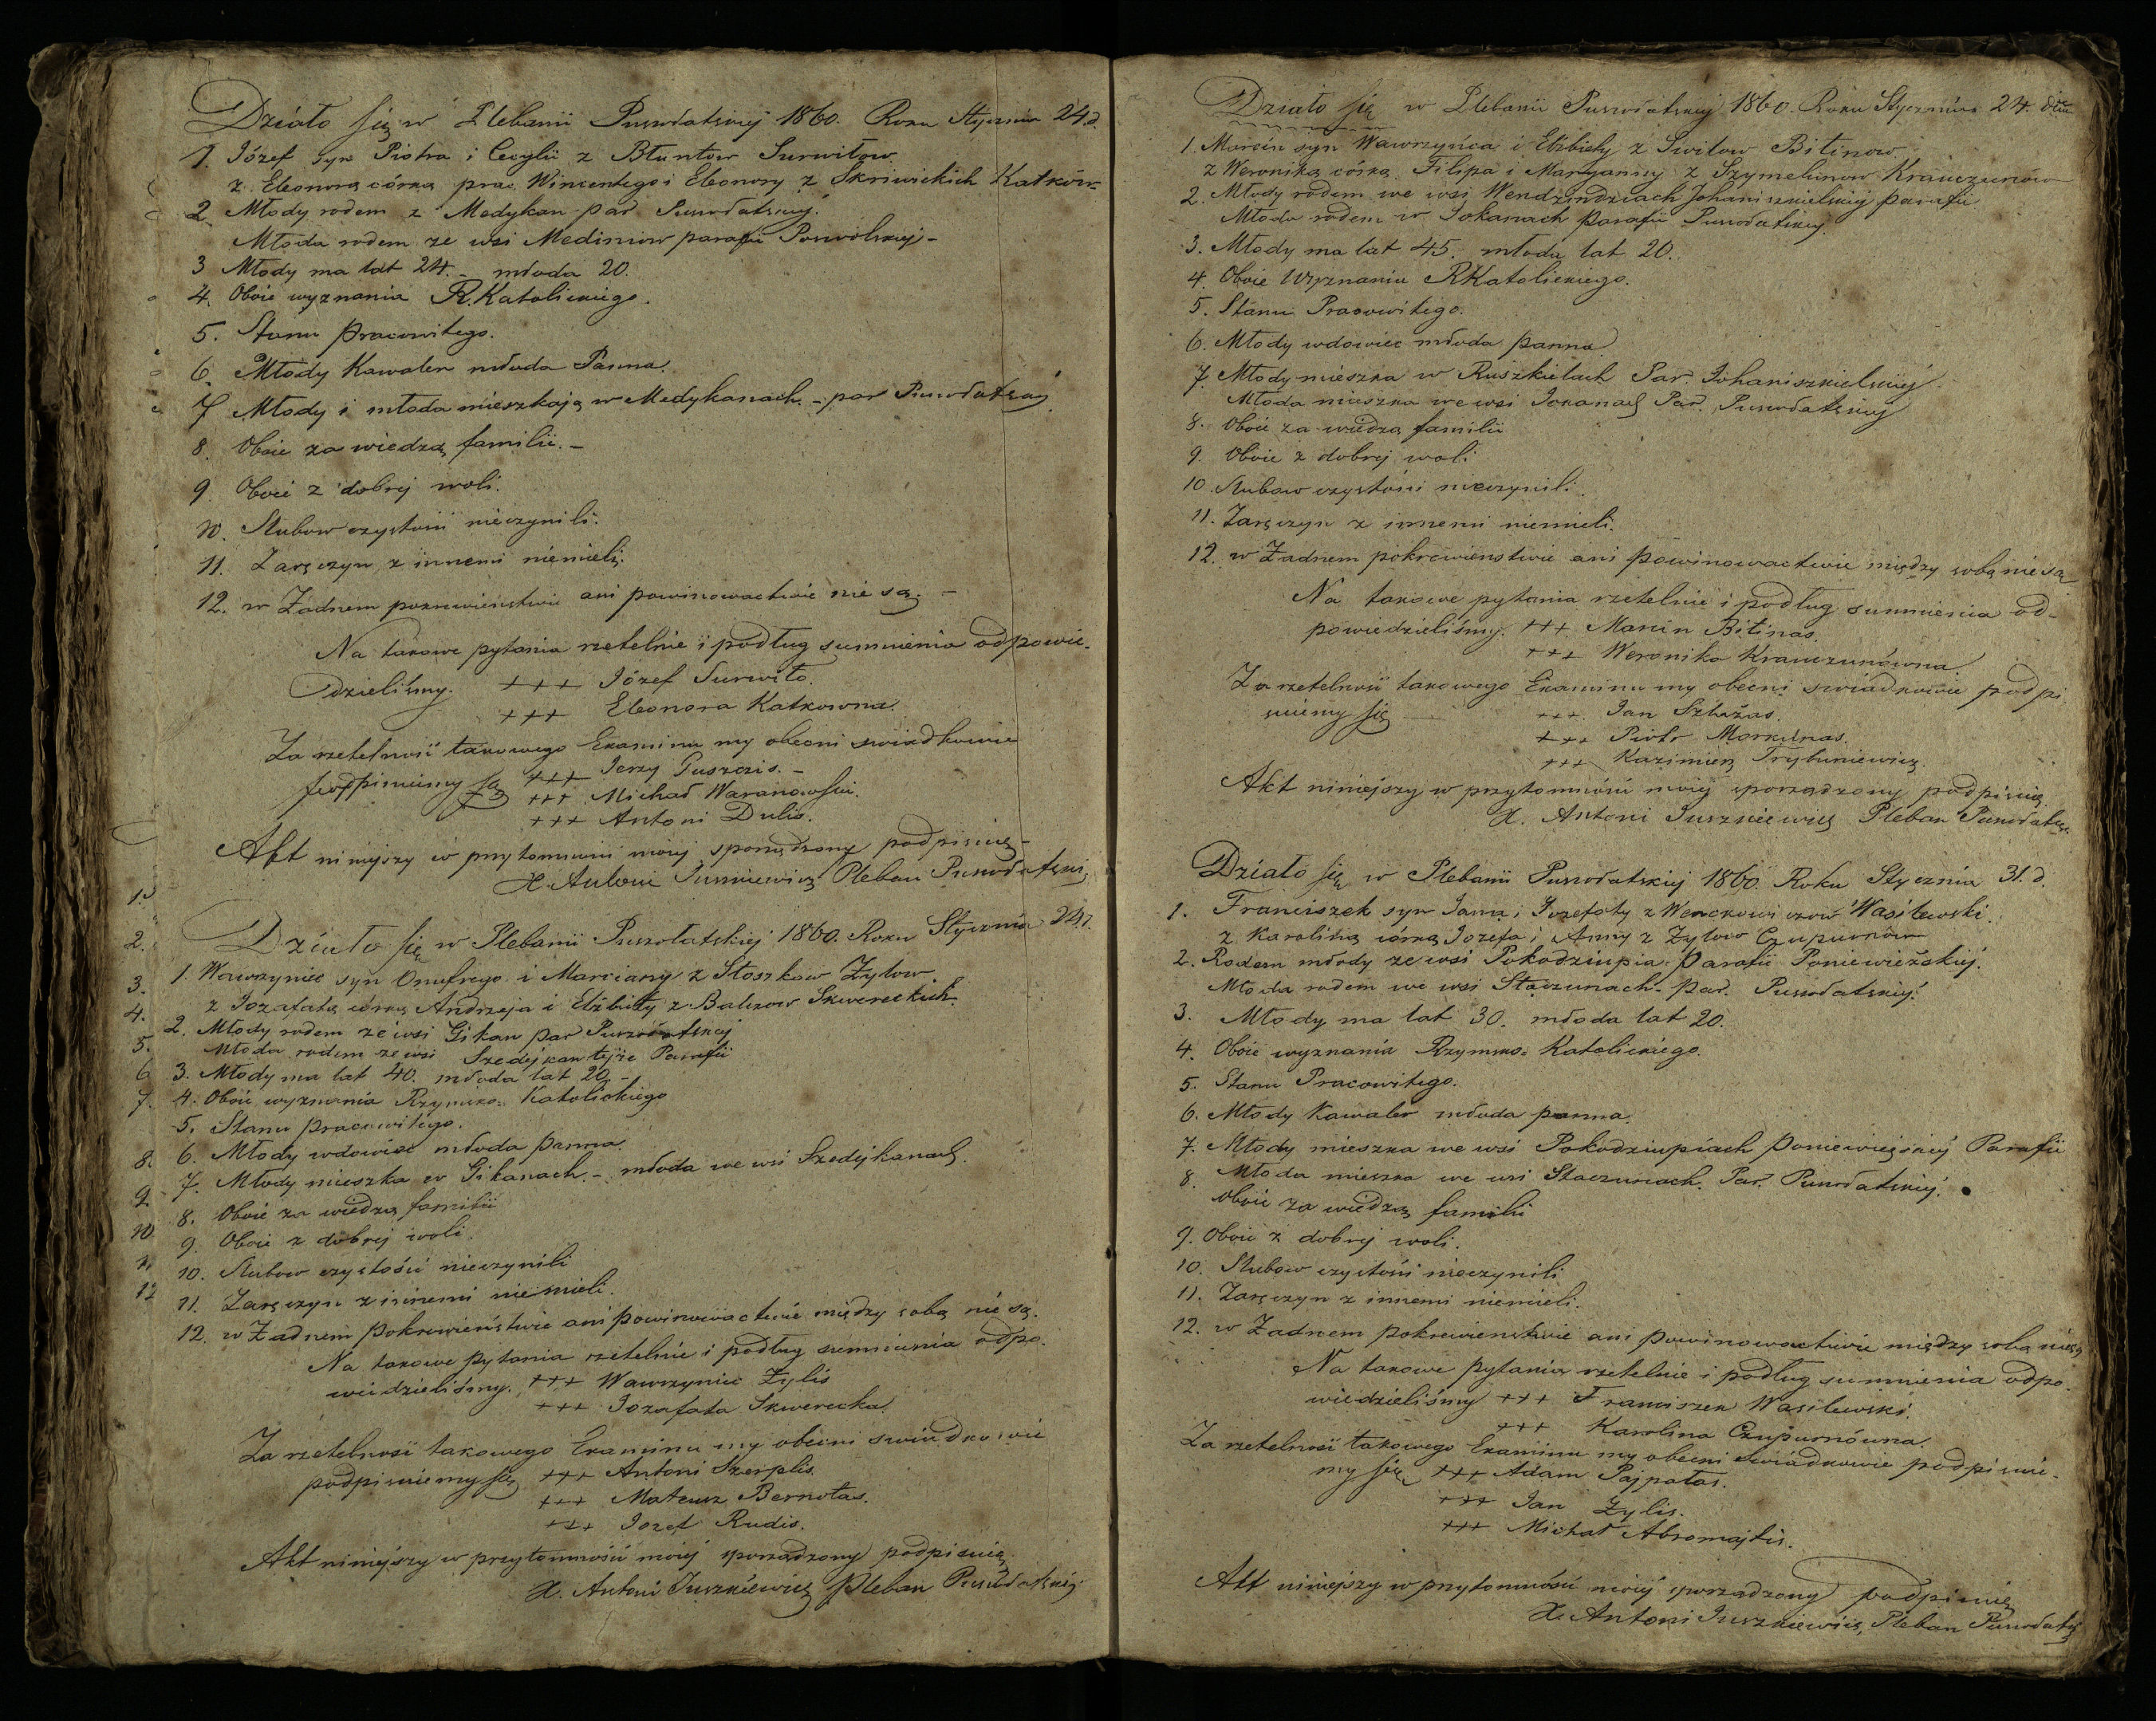 Działo się w Plebanii Puszołatskiej 1860. Roku Stycznia 24. d.
1. Józef syn Piotra i Cecylii z Błuntow Surwiłow
z Eleonorą córką prac. Wincentego i Eleonory z Skriwickich Katków
2. Młody rodem z Medykan par Puszołatskiej.
Młoda rodem ze wsi Mediniow parafii Poswolskiej -
3 Młody ma lat 24. - młoda 20.
4. Oboie wyznania R. Katolickiego.
5. Stanu Pracowitego.
6. Młody Kawaler młoda Panna.
7 Młody i młoda mieszkają w Medykanach. - par Puszołatskiej
8. Oboie za wiedzą familii. -
9. Oboie z dobrej woli.
10. Slubow czystości nieczynili.
11. Zaręczyn z innemi niemieli.
12. w Żadnem pokrewieństwie ani powinowactwie nie są. -
Na takowe pytania rzetelnie i podług sumnienia odpowie-
dzieliśmy. +++ Józef Surwiło.
+++ Eleonora Katkowna.
Za rzetelność takowego Examinu my obecni swiadkowie
podpisuiemy się +++ Jerzy Puszczis. -
+++ Michał Waranowski.
+++ Antoni Dulis.
Akt niniejszy w przytomności mojej sporządzony podpisuię -
X. Antoni Juszkiewicz Pleban Puszołatski
1.
2.
3.
4.
5.
6
7.
8.
9
10
11
12
Działo się w Plebanii Puszołatskiej 1860. Roku Stycznia 24 d.
1. Wawrzyniec syn Onufrego i Marciany z Słoszkow Żylow
z Jozafatą córką Andrzeja i Elżbiety z Balszow Skwereckich.
2. Młody rodem ze wsi Gikan par Puszołatskiej
Młoda rodem ze wsi Szedejkan tejże Parafii
3. Młody ma lat 40. młoda lat 20. -
4. Oboie wyznania Rzymsko= Katolickiego
5. Stanu pracowitego.
6. Młody wdowiec młoda panna.
7. Młody mieszka w Gikanach. - młoda we wsi Szedejkanach.
8. Oboie za wiedzą familii
9. Oboie z dobrej woli.
10. Slubow czystości nieczynili
11. Zaręczyn z innemi niemieli.
12. w Żadnem pokrewieństwie ani powinowactwie między sobą nie są.
Na takowe pytania rzetelnie i podług sumnienia odpo-
wiedzieliśmy. +++ Wawrzyniec Żylis
+++ Jozafata Skwerecka.
Za rzetelność takowego Examinu my obecni swiadkowie
podpisuiemy się +++ Antoni Szerplis.
+++ Mateusz Bernotas.
+++ Jozef Rudis.
Akt niniejszy w przytomności moiej sporządzony podpisuię
X. Antoni Juszkiewicz Pleban Puszołatskiej
Działo się w Plebanii Puszołatskiej 1860. Roku Stycznia 24. dnia
1. Marcin syn Wawrzyńca i Elżbiety z Switow Bitinow
z Weroniką córką Filipa i Maryanny z Szymelunow Krauczunów
2. Młody rodem we wsi Wendzindziach Johaniszkielskiej parafii
Młoda rodem w Jokanach parafii Puszołatskiej.
3. Młody ma lat 45. młoda lat 20.
4. Oboie Wyznania RKatolickiego.
5. Stanu Pracowitego.
6. Młody wdowiec młoda panna.
7. Młody mieszka w Ruszkielach Par. Johaniszkielskiej
Młoda mieszka we wsi Jokanach Par. Puszołatskiej
8. Oboie za wiedzą familii
9. Oboie z dobrej woli
10. Slubow czystości nieczynili.
11. Zaręczyn z innemi niemieli.
12. w Żadnem pokrewienstwie ani powinowactwie między sobą nie są
Na takowe pytania rzetelnie i podług sumnienia od-
powiedzieliśmy. +++ Marcin Bitinas.
+++ Weronika Krauczunówna
Za rzetelność takowego Examinu my obecni swiadkowie podpi
suiemy się +++ Jan Szlażas.
+++ Piotr Markunas.
+++ Kazimierz Trybuniewicz.
Akt niniejszy w przytomności moiej sporządzony podpisuię
X. Antoni Juszkiewicz Pleban Puszołatski
Działo się w Plebanii Puszołatskiej 1860. Roku Stycznia 31. d.
1. Franciszek syn Jana i Jozefaty z Wenckowiczow Wasilewski.
z Karoliną córką Jozefa i Anny z Żylow Czupurnów
2. Rodem młody ze wsi Pokodziupia Parafii Poniewieżskiej.
Młoda rodem we wsi Staczunach par. Puszołatskiej.
3. Młody ma lat 30. młoda lat 20.
4. Oboie wyznania Rzymsko= Katolickiego.
5. Stanu Pracowitego.
6. Młody Kawaler młoda panna.
7. Młody mieszka we wsi Pokodziupiach Poniewieżskiej Parafii
8. Młoda mieszka we wsi Staczunach. Par. Puszołatskiej.
Oboie za wiedzą familii
9. Oboie z dobrej woli.
10. Slubow czystości nieczynili
11. Zaręczyn z innemi niemieli.
12. w Żadnem pokrewienstwie ani powinowactwie między sobą nie są
Na takowe pytania rzetelnie i podług sumnienia odpo-
wiedzieliśmy +++ Franciszek Wasilewski.
+++ Karolina Czupurnówna.
Za rzetelność takowego Examinu my obecni swiadkowie podpisuie-
my się +++ Adam Pajpałas.
+++ Jan Żylis.
+++ Michał Abromajtis.
Akt niniejszy w przytomności moiej sporządzony podpisuię
X. Antoni Juszkiewicz, Pleban Puszołatski